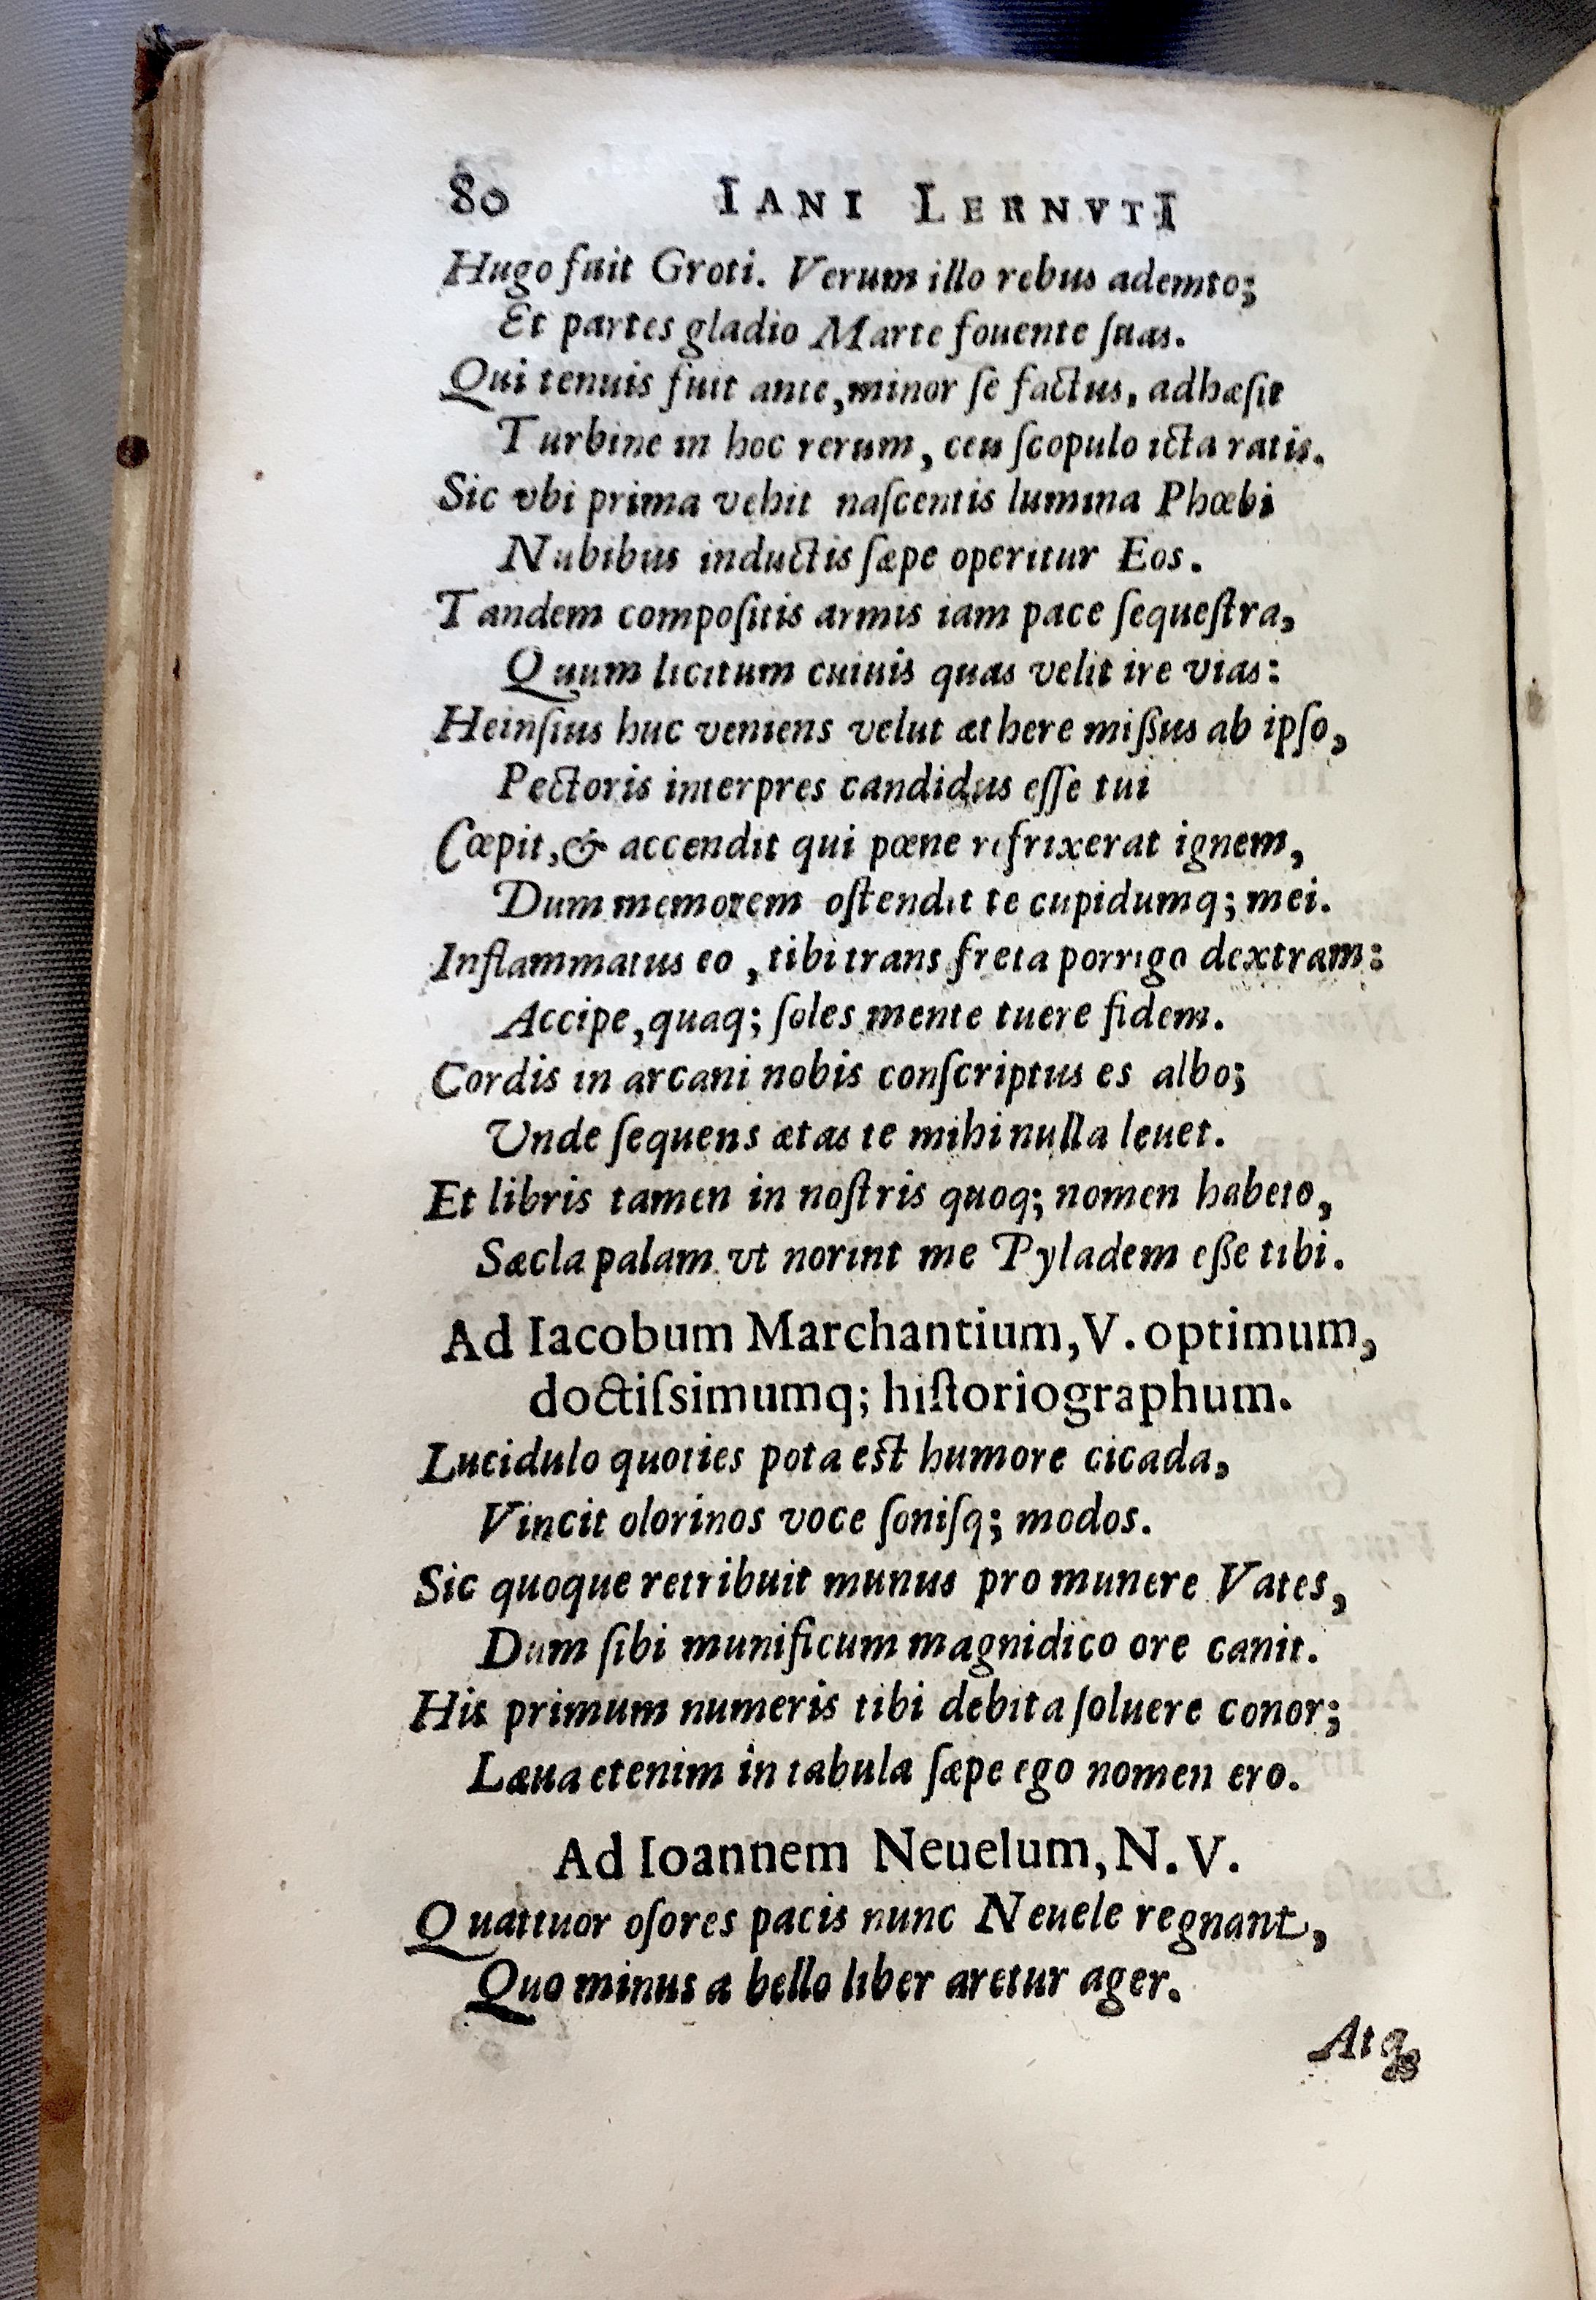 80 IANI LERNVTI
Hugo fuit Groti. Verum illo rebus ademto;
Et partes gladio Marte fouente ſuas.
Qui tenuis fuit ante, minor ſe factus, adhæſit
Turbine in hoc rerum, ceu ſcopulo icta ratis.
Sic vbi prima vehit naſcentis lumina Phœbi
Nubibus inductis ſæpe operitur Eos.
Tandem compoſitis armis iam pace ſequeſtra,
Quum licitum cuiuis quas velit ire vias:
Heinſius huc veniens velut æthere mißus ab ipſo,
Pectoris interpres candidus eſſe tui
Cœpit, & accendit qui pœne refrixerat ignem,
Dum memorem oſtendit te cupidumq; mei.
Inflammatus eo, tibi trans freta porrigo dextram:
Accipe, quaq; ſoles mente tuere fidem.
Cordis in arcani nobis conſcriptus es albo;
Unde ſequens ætas te mihi nulla leuet.
Et libris tamen in noſtris quoq; nomen habeto,
Sæcla palam vt norint me Pyladem eße tibi.
Ad Iacobum Marchantium, V. optimum,
doctiſsimumq; hiſtoriographum.
Lucidulo quoties pota eſt humore cicada,
Vincit olorinos voce ſoniſq; modos.
Sic quoque retribuit munus pro munere Vates,
Dum ſibi munificum magnidico ore canit.
His primum numeris tibi debita ſoluere conor;
Læua etenim in tabula ſæpe ego nomen ero.
Ad Ioannem Neuelum, N. V.
Quattuor oſores pacis nunc Neuele regnant,
Quo minus a bello liber aretur ager.
Atq;